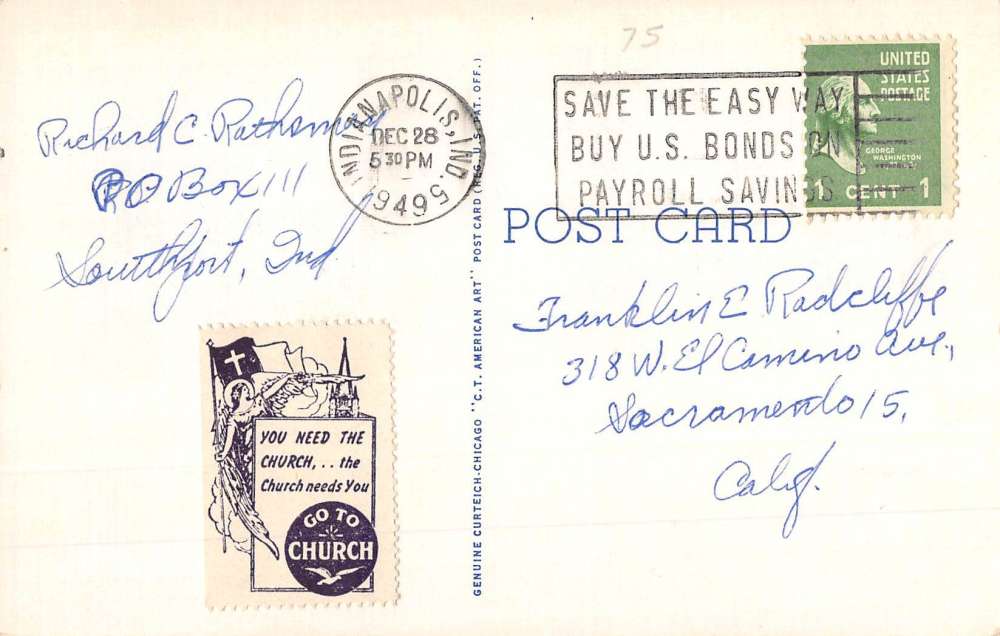 75
Richard C. Rathsmay
PO Box 111
Southport, Ind
INDIANAPOLIS, IND. 5
DEC 28
5 30 PM
1949
SAVE THE EASY WAY
BUY U.S. BONDS ON
PAYROLL SAVINGS
UNITED
STATES
POSTAGE
GEORGE
WASHINGTON
1 CENT 1
POST CARD
GENUINE CURTEICH-CHICAGO "C.T. AMERICAN ART" POST CARD (REG. U.S. PAT. OFF.)
Franklin E Radcliffe
318 W. El Camino Ave.,
Sacramento 15,
Calif.
YOU NEED THE
CHURCH,.. the
Church needs You
GO TO
CHURCH